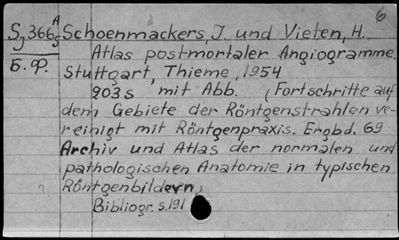 6
S₂366⁵ᴬ Schoenmackers, J. und Vieten, H.
Atlas postmortaler Angiogramme.
Б.Ф. Stuttgart, Thieme, 1954
903s mit Abb. (Fortschritte auf
dem Gebiete der Röntgenstrahlen ve-
reinigt mit Röntgenpraxis. Ergbd. 69
Archiv und Atlas der normalen und
pathologischen Anatomie in typischen
Röntgenbildern)
Bibliogr. s.191